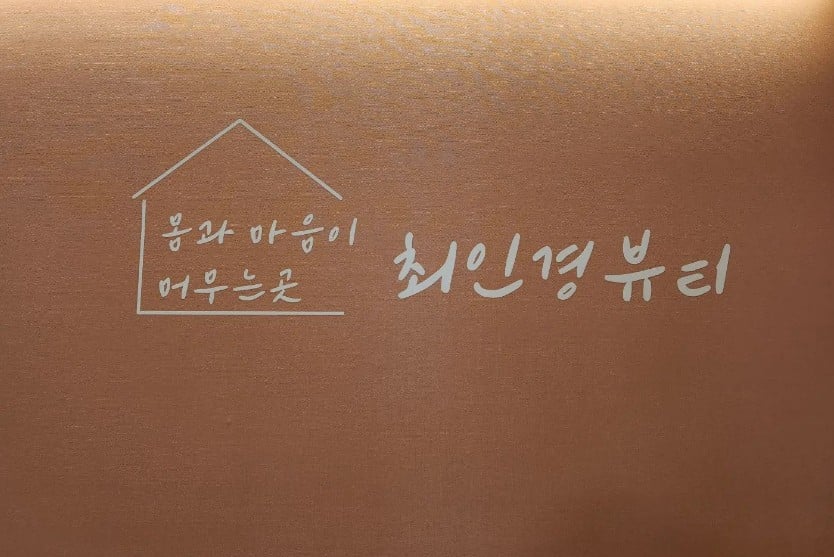 몸과 마음이
머무는곳
최인경뷰티